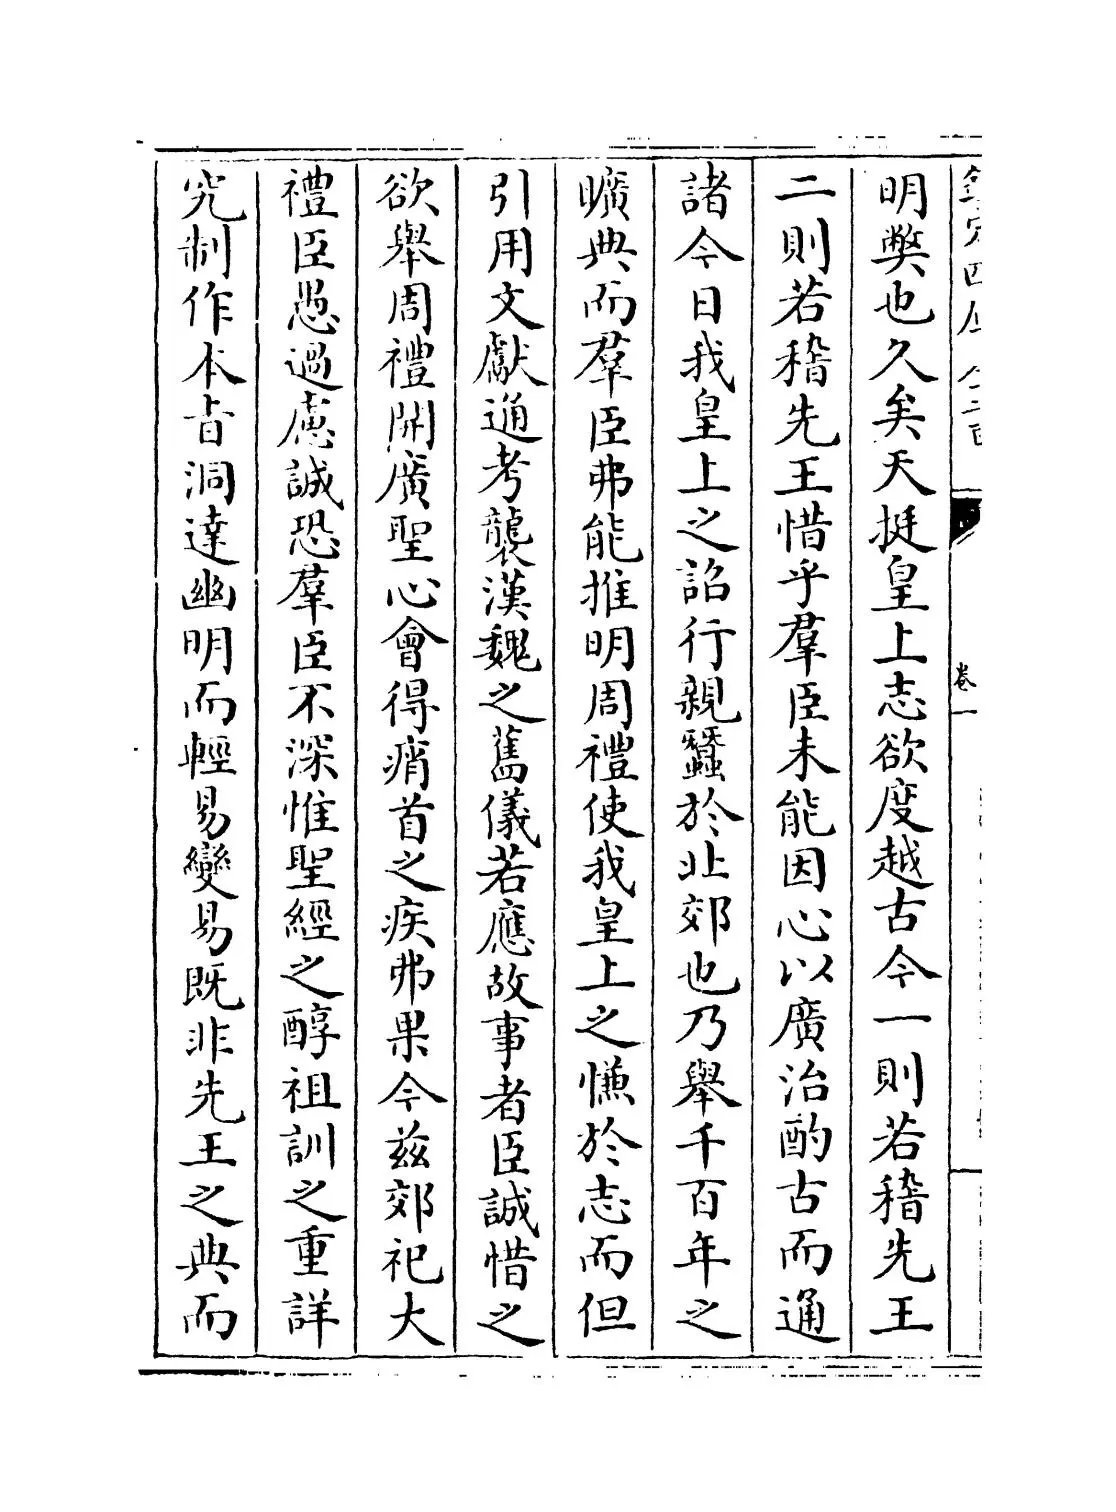 明獘也久矣天挺皇上志欲度越古今一則若稽先王
二則若稽先王惜乎羣臣未能因心以廣治酌古而通
諸今日我皇上之詔行親蠶於北郊也乃舉千百年之
曠典而羣臣弗能推明周禮使我皇上之慊於志而但
引用文獻通考襲漢魏之舊儀若應故事者臣誠惜之
欲舉周禮開廣聖心會得痟首之疾弗果今兹郊祀大
禮臣愚過慮誠恐羣臣不深惟聖經之醇祖訓之重詳
究制作本㫖洞達幽明而輕易變易既非先王之典而
卷一